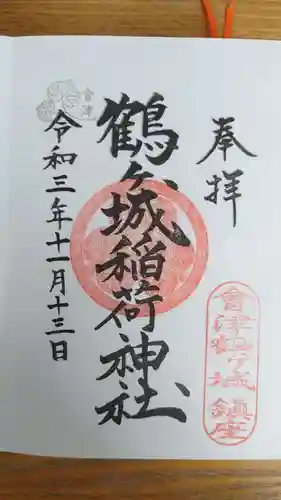 奉拝
會津鶴ケ城鎮座
鶴ヶ城稲荷神社
會津
令和三年十一月十三日